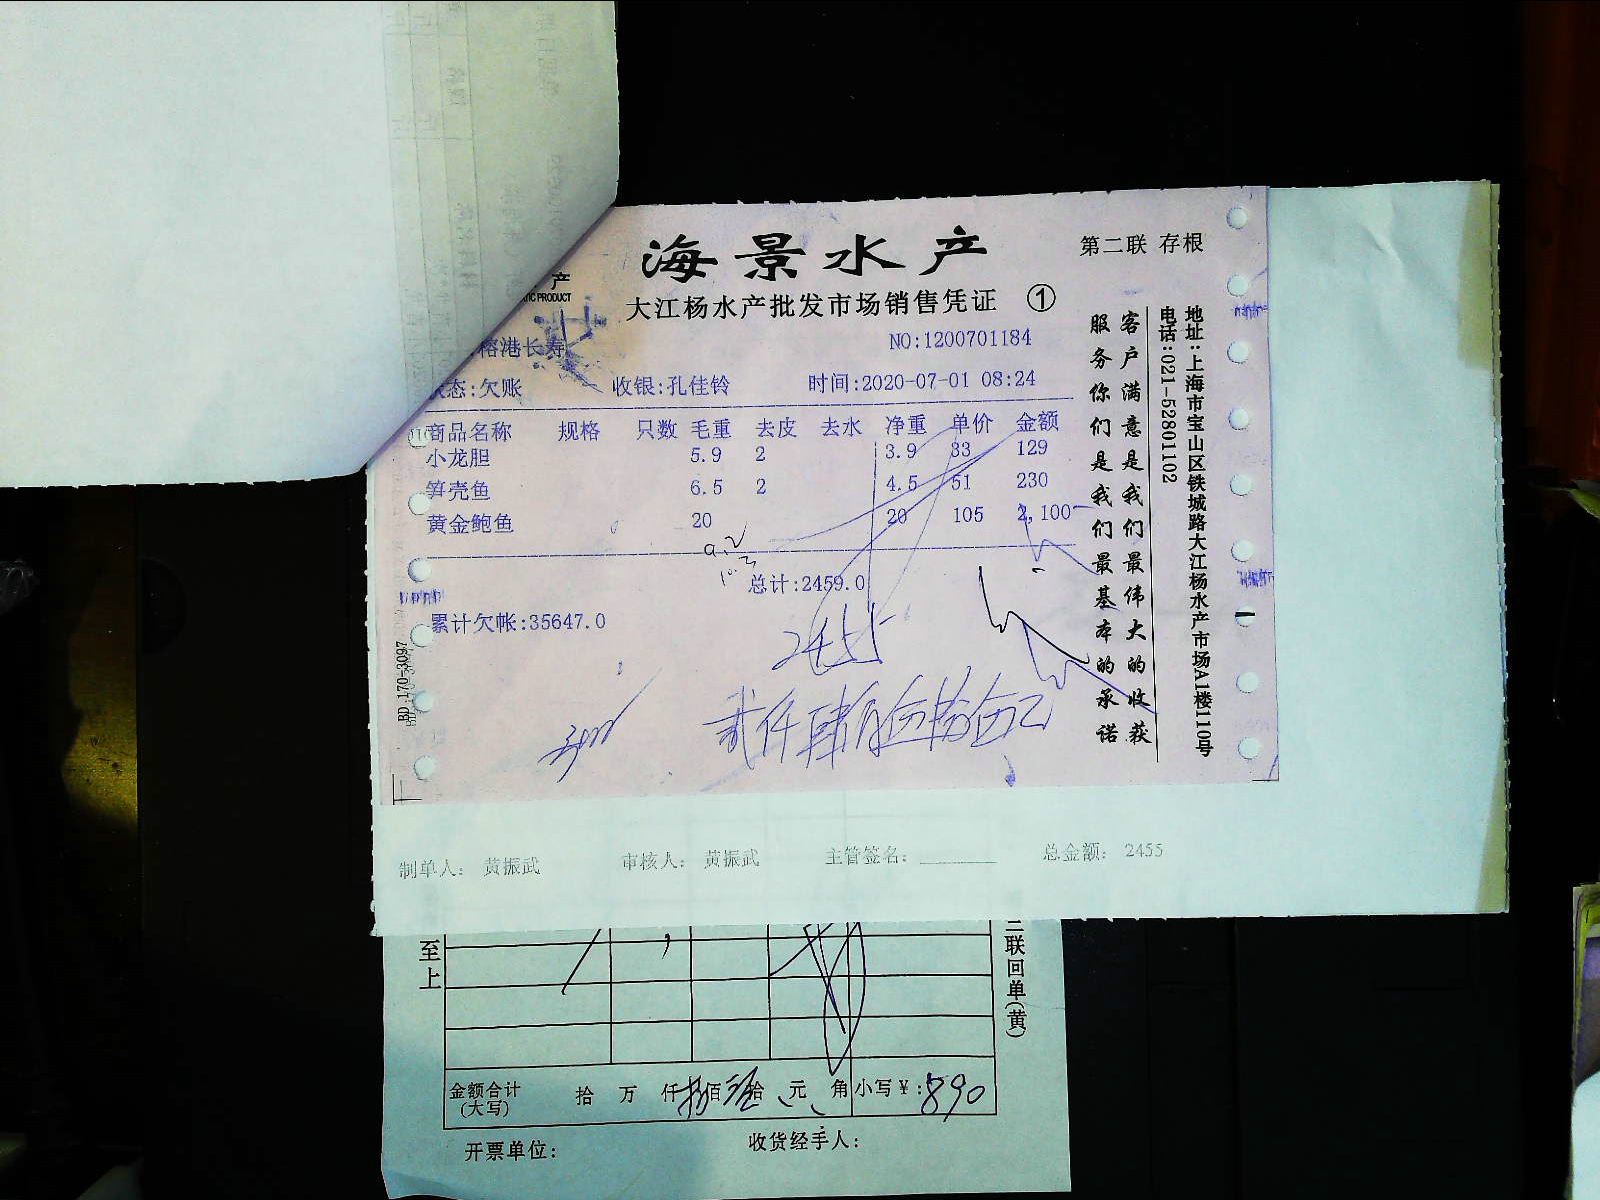 海景水产
第二联 存根
产
TIC PRODUCT
大江杨水产批发市场销售凭证 ①
榕港长寿
NO:1200701184
态:欠账 收银:孔佳铃 时间:2020-07-01 08:24
商品名称 规格 只数 毛重 去皮 去水 净重 单价 金额
小龙胆 5.9 2 3.9 33 129
笋壳鱼 6.5 2 4.5 51 230
黄金鲍鱼 20 20 105 2,100
9.2
10.3
总计:2459.0
累计欠帐:35647.0
2455
贰仟肆佰伍拾伍元
客户满意是我们最伟大的收获
服务你们是我们最基本的承诺
地址:上海市宝山区铁城路大江杨水产市场A1楼110号
电话:021-52801102
BD:170-3097
制单人: 黄振武 审核人: 黄振武 主管签名: 总金额: 2455
至上
二联回单(黄)
金额合计(大写) 拾 万 仟 捌 佰 玖 拾 元 角 小写¥:890
开票单位: 收货经手人: